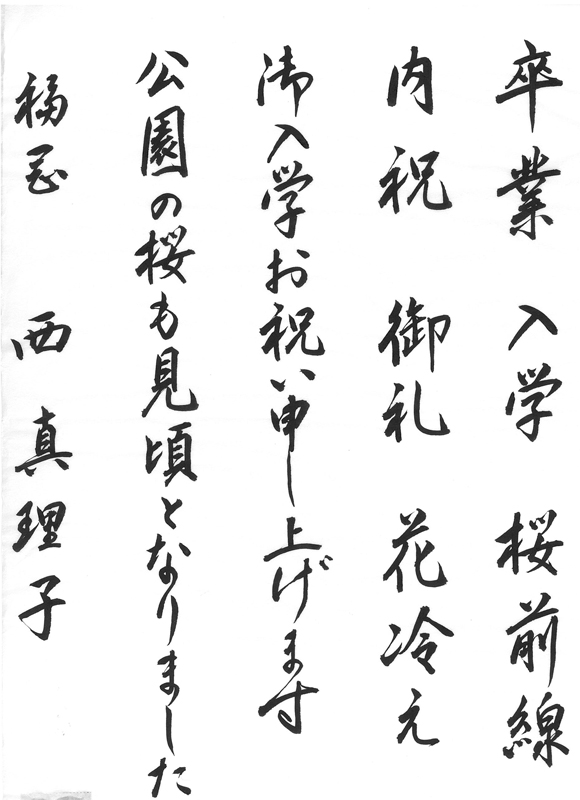 卒業 入学 桜前線
内祝 御礼 花冷え
御入学お祝い申し上げます
公園の桜も見頃となりました
福岡 西真理子